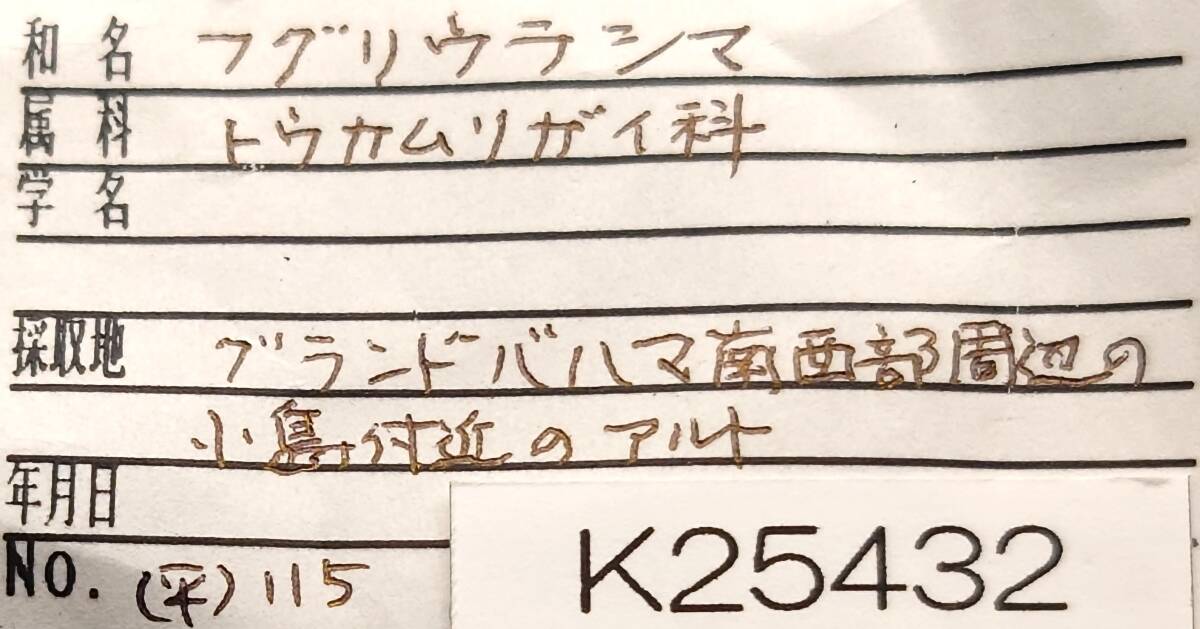 和名 フグリウラシマ
属科 トウカムリガイ科
学名
採取地 グランドバハマ南西部周辺の
小島付近のアルト
年月日
No. (平)115
K25432